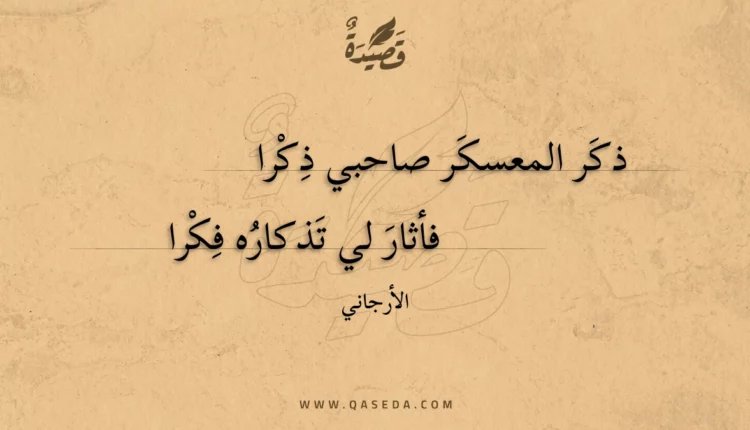 قَصِيْدَةٌ
ذكَر المعسكَر صاحبي ذِكْرا
فأثارَ لي تَذكارُه فِكْرا
الأرجاني
WWW.QASEDA.COM